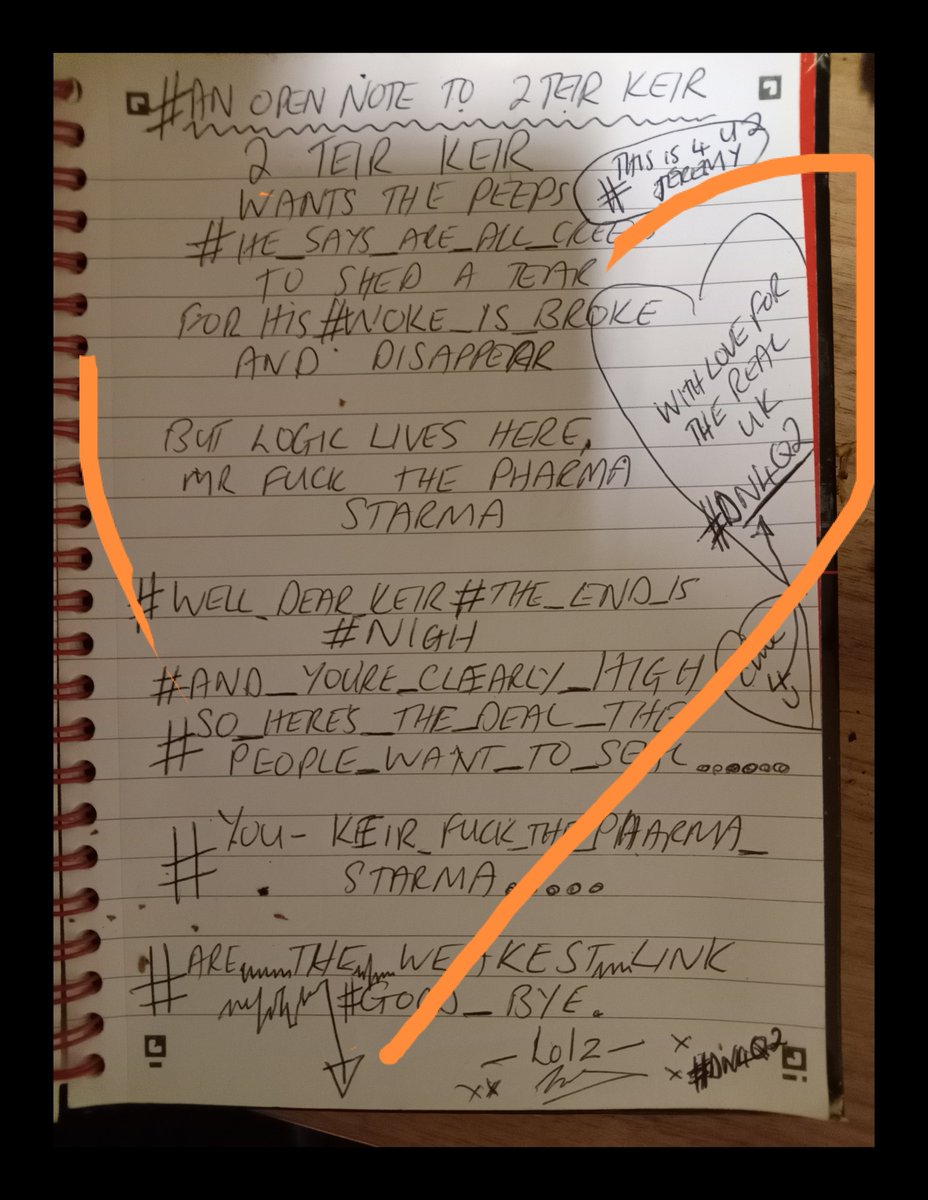 #AN OPEN NOTE TO 2 TEIR KEIR
2 TEIR KEIR
WANTS THE PEEPS
#HE_SAYS_ARE_ALL_CREEPS
TO SHED A TEAR
FOR HIS #WOKE_IS_BROKE
AND DISAPPEAR
# THIS IS 4 U 2
JEREMY
WITH LOVE FOR
THE REAL
UK
#DN4Q2
BUT LOGIC LIVES HERE,
MR FUCK THE PHARMA
STARMA
#WELL_DEAR_KEIR #THE_END_IS
#NIGH
#AND_YOURE_CLEARLY_HIGH
#SO_HERE'S_THE_DEAL_THE
PEOPLE_WANT_TO_SEAL......
# YOU- KEIR_FUCK_THE_PHARMA_
STARMA.....
#ARE THE WEAKEST LINK
#GOOD_BYE.
- Lolz -
x
xx
x #DN4Q2